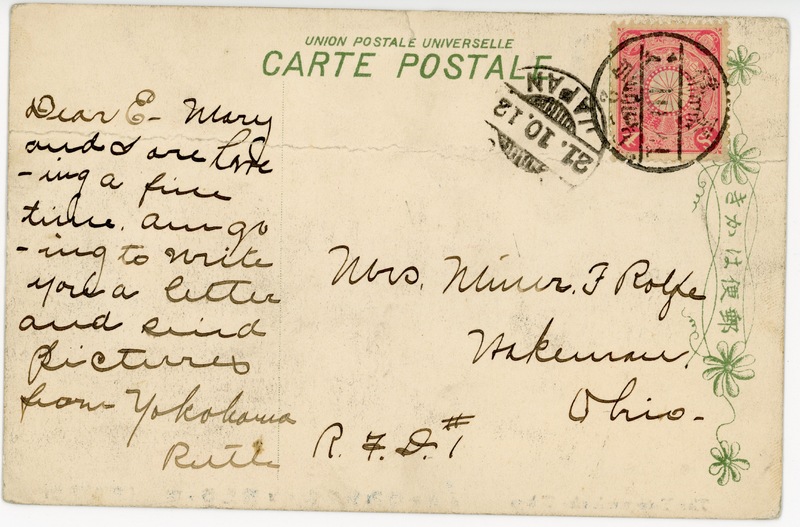 UNION POSTALE UNIVERSELLE
CARTE POSTALE
Dear E- Mary
and I are hav
-ing a fine
time. am go
-ing to write
you a letter
and send
pictures
from Yokohama
Ruth
JAPAN
21.10.12
Mrs. Miner. F Rolfe
Wakeman,
Ohio-
R. F. D. #1
きかは便郵